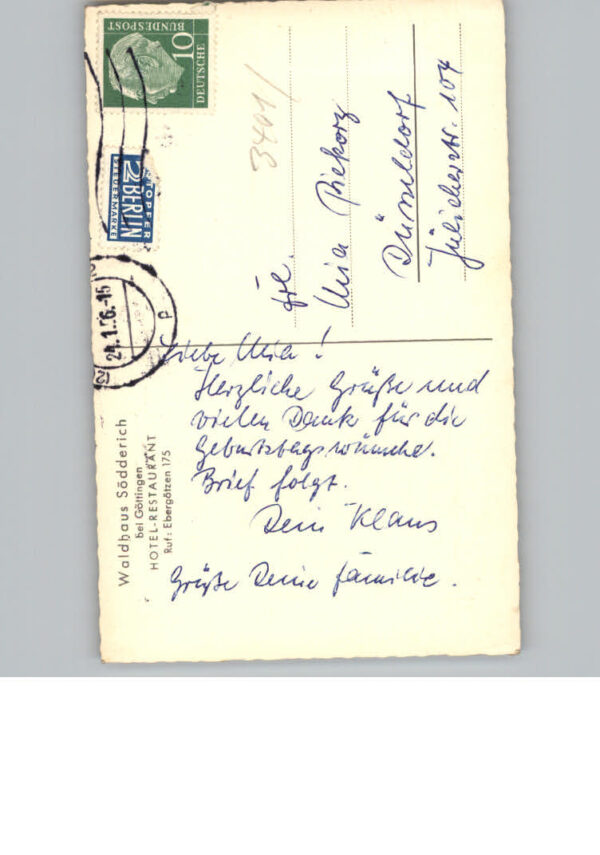 DEUTSCHE
BUNDESPOST
10
NOTOPFER
2 BERLIN
STEUERMARKE
24.1.56.-15
3401/
Frl.
Mia Piekorz
Düsseldorf
Jülicherstr. 104
Liebe Mia!
Herzliche Grüße und
vielen Dank für die
Geburtstagswünsche.
Brief folgt.
Dein Klaus
Grüße Deine Familie.
Waldhaus Södderich
bei Göttingen
HOTEL-RESTAURANT
Ruf: Ebergötzen 175